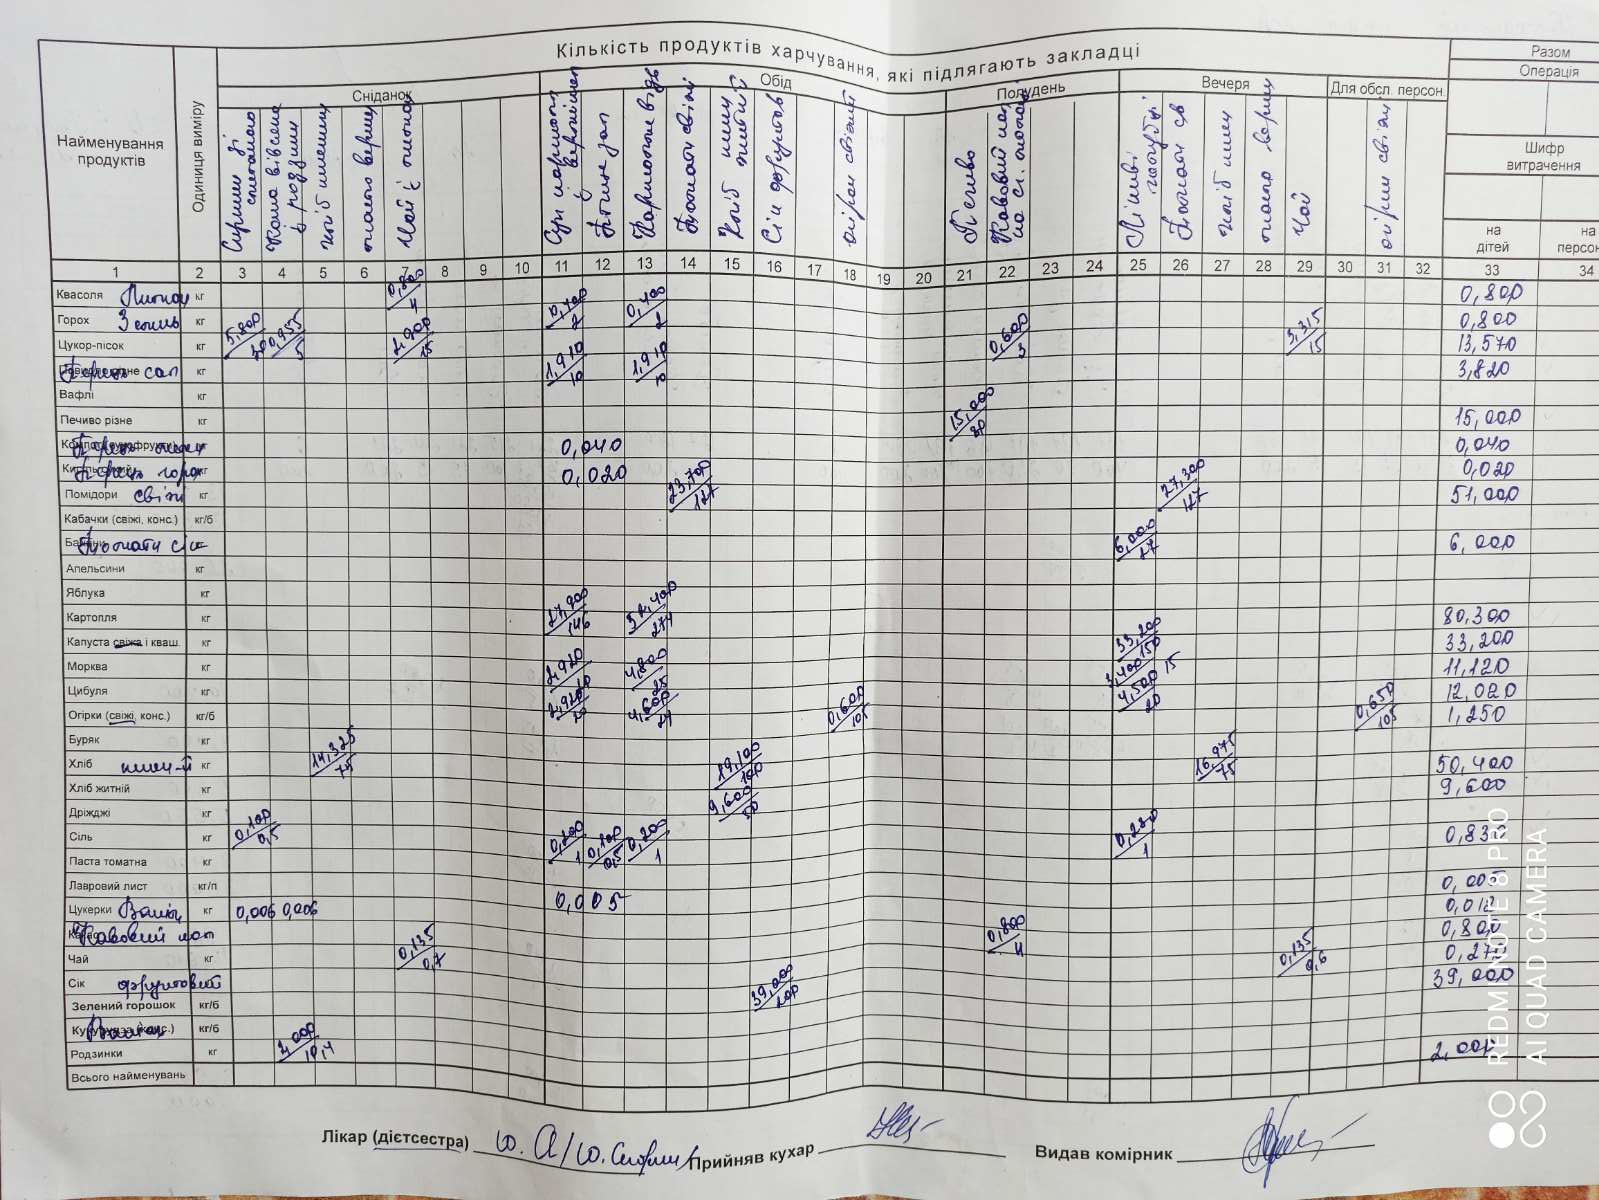 Кількість продуктів харчування, які підлягають закладці
Разом
Операція
Найменування продуктів
Одиниця виміру
Сніданок
Обід
Полудень
Вечеря
Для обсл. персон.
Шифр витрачення
на дітей
на персон
хліб пшеничн
масло верш
Чай з лимоном
Картопля відв
Томати свіжі
Хліб житній
Сік фруктов
огірки свіжий
Печиво
Кавовий нап
хліб пшен
масло верш
Чай
огірки свіжі
1 2 3 4 5 6 7 8 9 10 11 12 13 14 15 16 17 18 19 20 21 22 23 24 25 26 27 28 29 30 31 32 33 34
Квасоля Лимон кг 0,800/4 0,400/2 0,400/2 0,800
Горох Зелень кг 0,800
Цукор-пісок кг 5,800/30 0,955/5 2,900/15 0,600/3 3,315/15 13,570
кг 1,910/10 1,910/10 3,820
Вафлі кг
Печиво різне кг 15,000/80 15,000
кг 0,040 0,040
Перець горох кг 0,020 0,020
Помідори свіжі кг 23,700/127 27,300/127 51,000
Кабачки (свіжі, конс.) кг/б
Томати кг 6,000/27 6,000
Апельсини кг
Яблука кг
Картопля кг 27,900/146 52,400/274 80,300
Капуста свіжа і кваш. кг 33,200/150 33,200
Морква кг 2,920/10 4,800/25 3,400/15 11,120
Цибуля кг 2,920/20 4,600/24 4,500/20 12,020
Огірки (свіжі, конс.) кг/б 0,600/105 0,650/105 1,250
Буряк кг
Хліб пшен-й кг 14,325/75 19,100/100 16,975/75 50,400
Хліб житній кг 9,600/50 9,600
Дріжджі кг
Сіль кг 0,100/0,5 0,200/1 0,100/0,5 0,200/1 0,230/1 0,830
Паста томатна кг
Лавровий лист кг/п 0,005 0,005
Цукерки Ванілін кг 0,006 0,006 0,012
Кавовий нап 0,800/4 0,800
Чай кг 0,135/0,7 0,135/0,6 0,270
Сік фруктовий 39,000/200 39,000
Зелений горошок кг/б
Кукурудза (конс.) кг/б
Родзинки кг 2,000/10,4 2,000
Всього найменувань
Лікар (дієтсестра)
Прийняв кухар
Видав комірник
REDMI NOTE 8 PRO
AI QUAD CAMERA